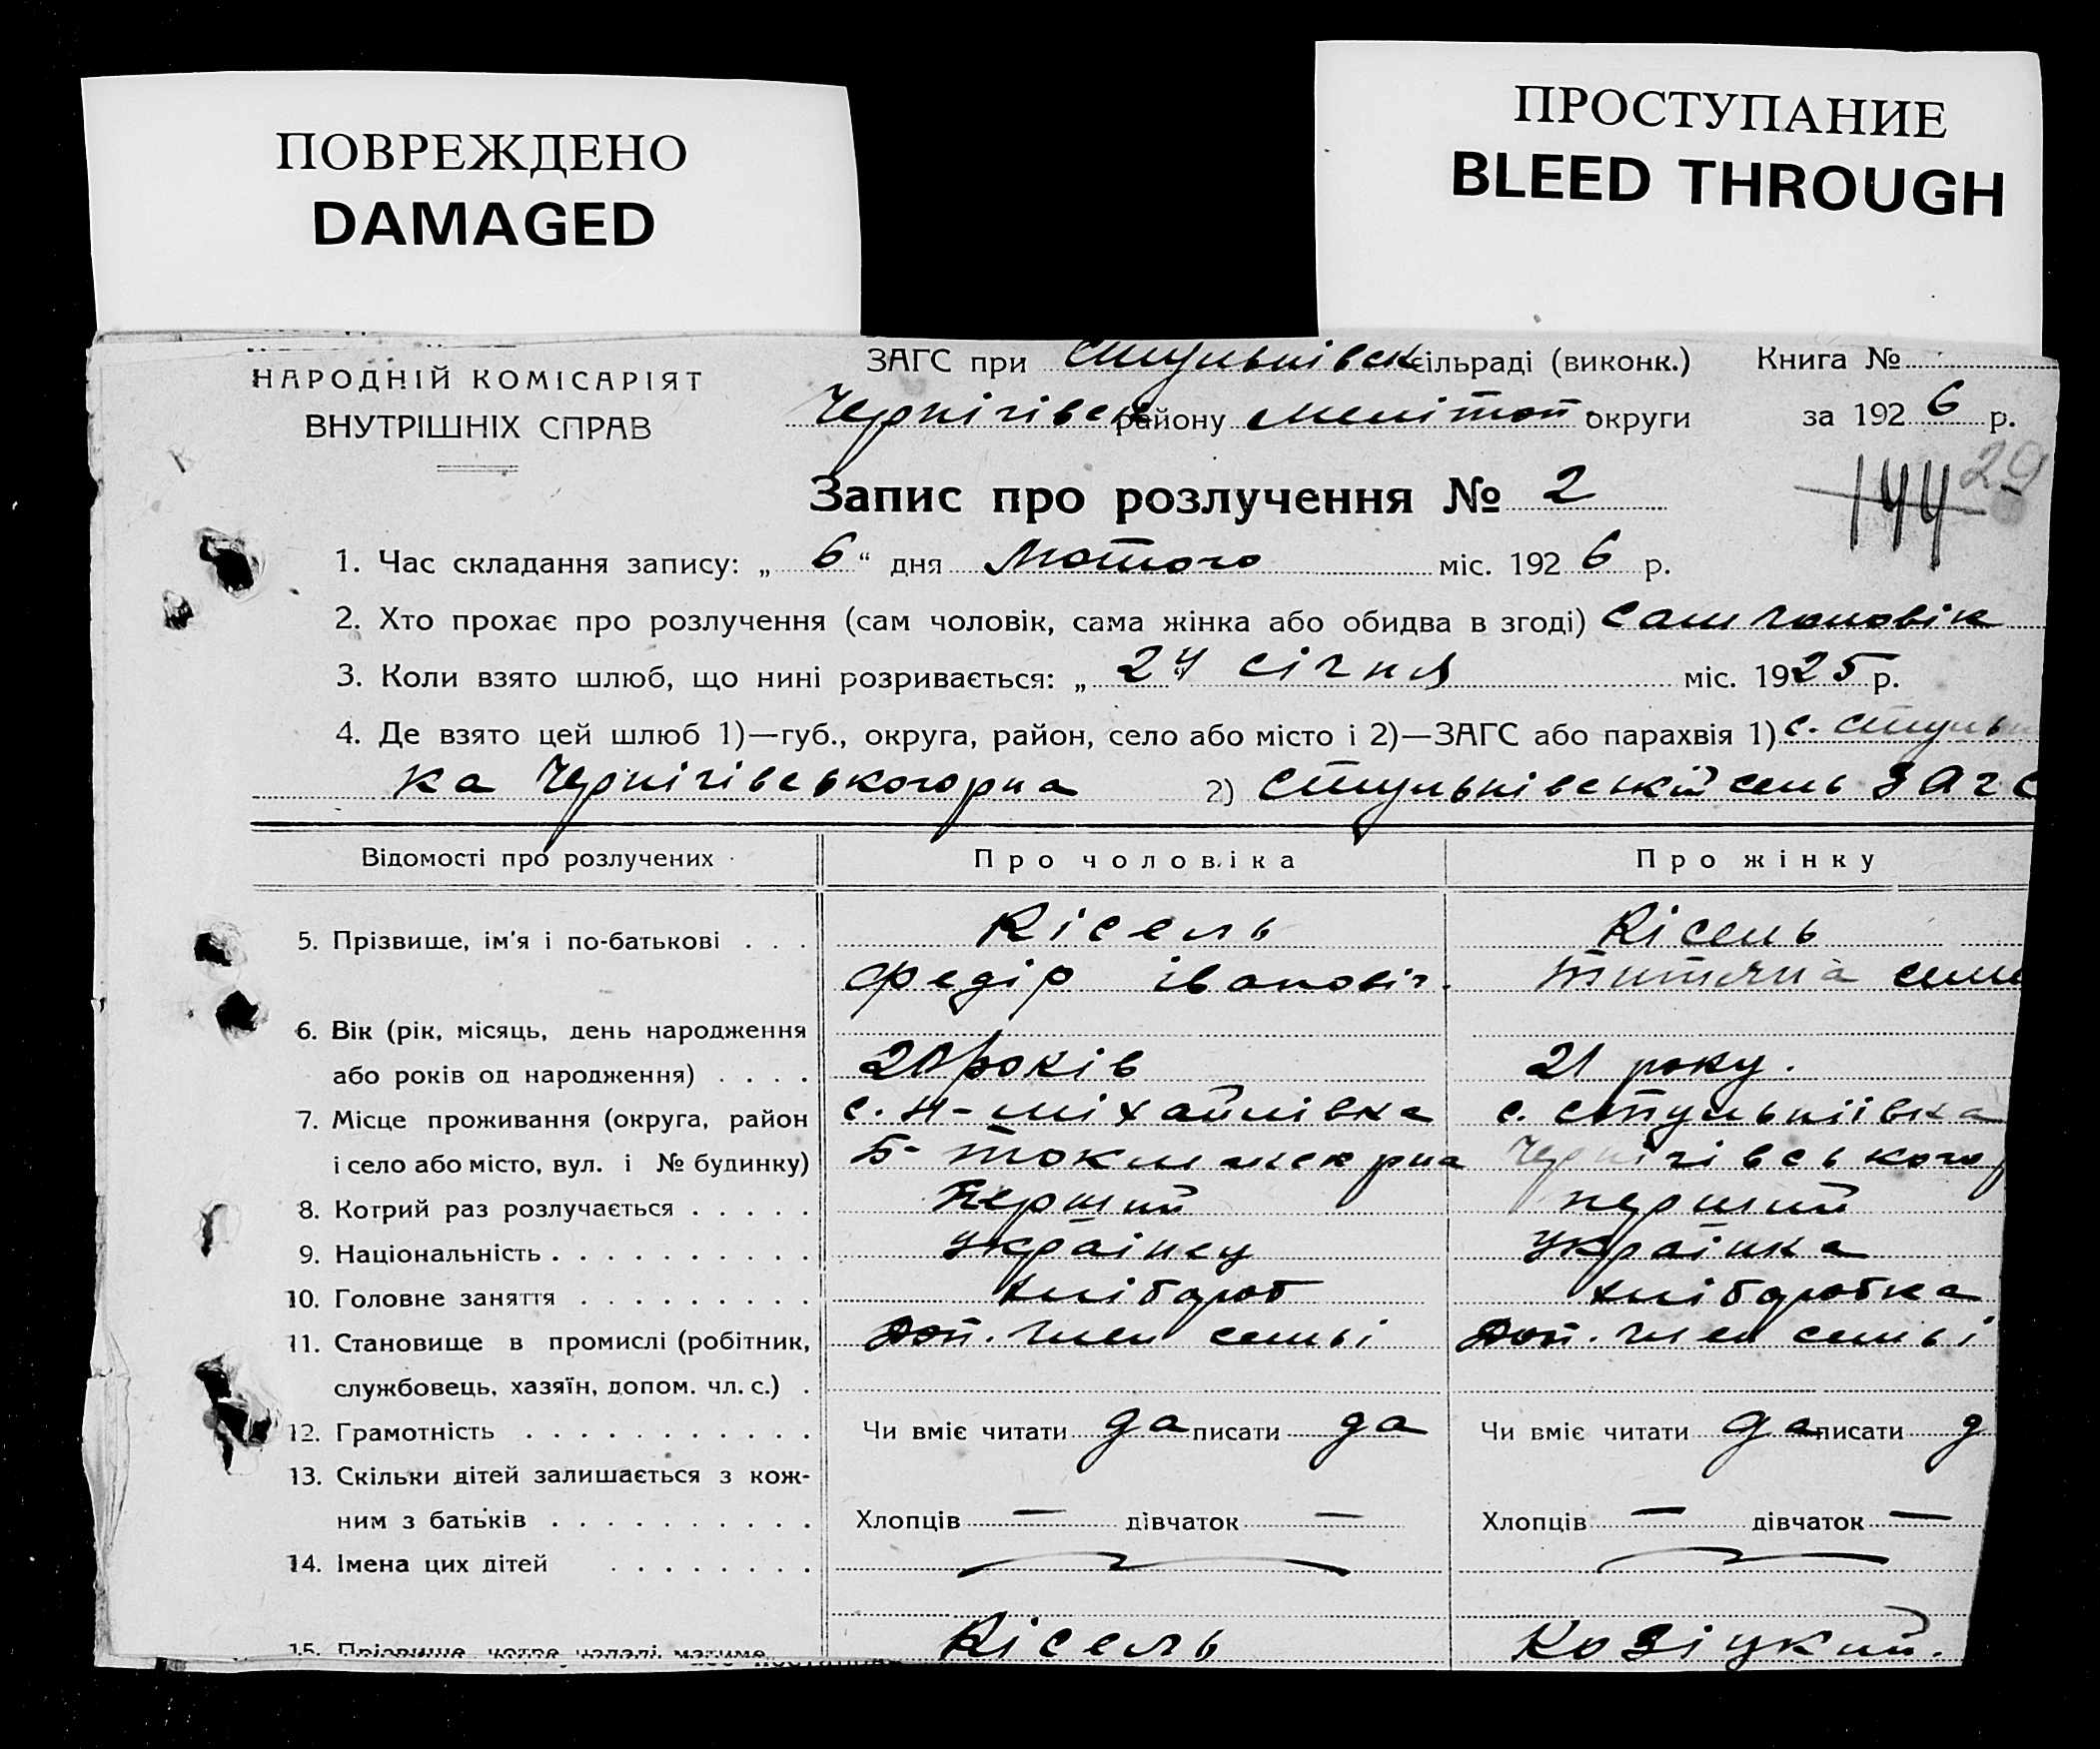 ПОВРЕЖДЕНО
DAMAGED
ПРОСТУПАНИЕ
BLEED THROUGH
НАРОДНІЙ КОМІСАРІЯТ
ВНУТРІШНІХ СПРАВ
ЗАГС при Стульнівськ сільраді (виконк.)
Чернігівськ району Мелітоп округи
Книга №
за 1926 р.
29
144
Запис про розлучення № 2
1. Час складання запису: „ 6 “ дня Лютого міс. 1926 р.
2. Хто прохає про розлучення (сам чоловік, сама жінка або обидва в згоді) сам чоловік
3. Коли взято шлюб, що нині розривається: „ 27 січня міс. 1925 р.
4. Де взято цей шлюб 1)—губ., округа, район, село або місто і 2)—ЗАГС або парахвія 1) с. Стульн
ка Чернігівського рна 2) Стульнівській сель ЗАГС
Відомості про розлучених Про чоловіка Про жінку
5. Прізвище, ім'я і по-батькові . . . Кісель Кісель
Федір Івановіч. Титяна Семе
6. Вік (рік, місяць, день народження
або років од народження) . . . . років 21 року.
7. Місце проживання (округа, район с. Н-Міхайлівка с. Стульніівка
і село або місто, вул. і № будинку) Б-Токмакськ рна Чернігівського р
8. Котрий раз розлучається . . . . . Перший перший
9. Національність . . . . . . . . . . Українец Українка
10. Головне заняття . . . . . . . . . хлібороб хліборобка
11. Становище в промислі (робітник, Доп. член семьі Доп. член семьі
службовець, хазяїн, допом. чл. с.) .
12. Грамотність . . . . . . . . . . . . Чи вміє читати да писати да Чи вміє читати да писати д
13. Скільки дітей залишається з кож-
ним з батьків . . . . . . . . . . . Хлопців — дівчаток — Хлопців — дівчаток —
14. Імена цих дітей . . . . . . . .
15. Прізвище, котре надалі матиме Кісель Козіцкий.